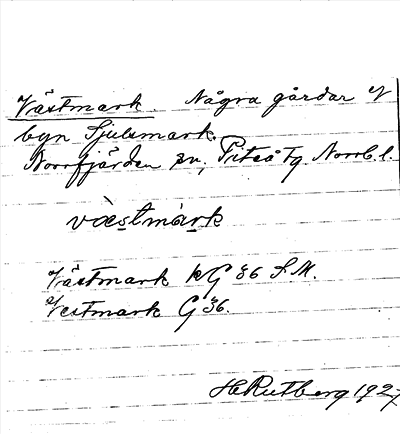 Västmark. Några gårdar i
byn Sjulsmark.
Norrfjärden sn, Piteå tg Norrb. l.
væstmark
Västmark kG 36 S.M.
Vestmark G 36.
H Rutberg 1927